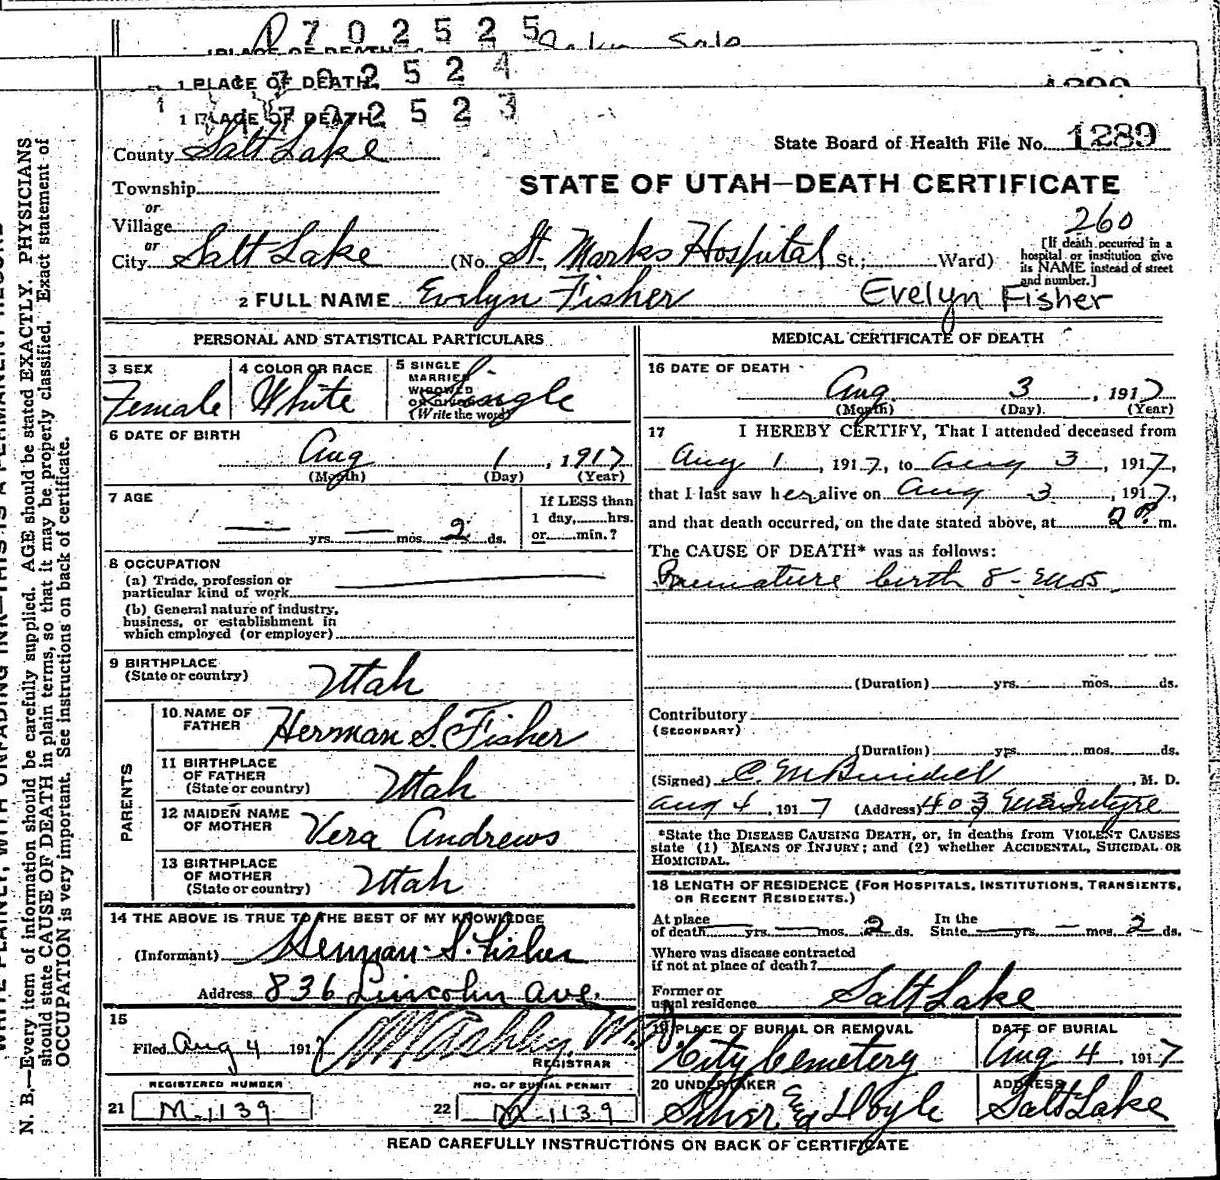 702525
1 PLACE OF DEATH 702524
1 PLACE OF DEATH 702523
County Salt Lake
State Board of Health File No. 1289
Township
or
STATE OF UTAH—DEATH CERTIFICATE
Village
or
260
City Salt Lake (No. St. Marks Hospital St.; Ward)
[If death occurred in a
hospital or institution give
its NAME instead of street
and number.]
2 FULL NAME Evelyn Fisher Evelyn Fisher
PERSONAL AND STATISTICAL PARTICULARS
3 SEX Female
4 COLOR OR RACE White
5 SINGLE
MARRIED
WIDOWED
OR DIVORCED
(Write the word) Single
6 DATE OF BIRTH
Aug 1, 1917
(Month) (Day) (Year)
7 AGE
— yrs. — mos. 2 ds.
If LESS than
1 day, hrs.
or min.?
8 OCCUPATION
(a) Trade, profession or
particular kind of work
(b) General nature of industry,
business, or establishment in
which employed (or employer)
9 BIRTHPLACE
(State or country) Utah
PARENTS
10 NAME OF
FATHER Herman S. Fisher
11 BIRTHPLACE
OF FATHER
(State or country) Utah
12 MAIDEN NAME
OF MOTHER Vera Andrews
13 BIRTHPLACE
OF MOTHER
(State or country) Utah
14 THE ABOVE IS TRUE TO THE BEST OF MY KNOWLEDGE
(Informant) Herman S. Fisher
Address 836 Lincoln Ave.
15
Filed Aug 4 1917
REGISTRAR
REGISTERED NUMBER
21 M-1139
NO. OF BURIAL PERMIT
22 M-1139
MEDICAL CERTIFICATE OF DEATH
16 DATE OF DEATH
Aug 3, 1917
(Month) (Day) (Year)
17 I HEREBY CERTIFY, That I attended deceased from
Aug 1, 1917, to Aug 3, 1917,
that I last saw her alive on Aug 3, 1917,
and that death occurred, on the date stated above, at 2 P. m.
The CAUSE OF DEATH* was as follows:
Premature birth 8-mos
(Duration) yrs. mos. ds.
Contributory
(SECONDARY)
(Duration) yrs. mos. ds.
(Signed) M. D.
Aug 4, 1917 (Address) 403 McIntyre
*State the DISEASE CAUSING DEATH, or, in deaths from VIOLENT CAUSES
state (1) MEANS OF INJURY; and (2) whether ACCIDENTAL, SUICIDAL OR
HOMICIDAL.
18 LENGTH OF RESIDENCE (FOR HOSPITALS, INSTITUTIONS, TRANSIENTS,
OR RECENT RESIDENTS.)
At place
of death — yrs. — mos. 2 ds.
In the
State — yrs. — mos. 2 ds.
Where was disease contracted
if not at place of death?
Former or
usual residence Salt Lake
19 PLACE OF BURIAL OR REMOVAL
City Cemetery
DATE OF BURIAL
Aug 4, 1917
20 UNDERTAKER
ADDRESS
Salt Lake
READ CAREFULLY INSTRUCTIONS ON BACK OF CERTIFICATE
N. B.—Every item of information should be carefully supplied. AGE should be stated EXACTLY. PHYSICIANS
should state CAUSE OF DEATH in plain terms, so that it may be properly classified. Exact statement of
OCCUPATION is very important. See instructions on back of certificate.